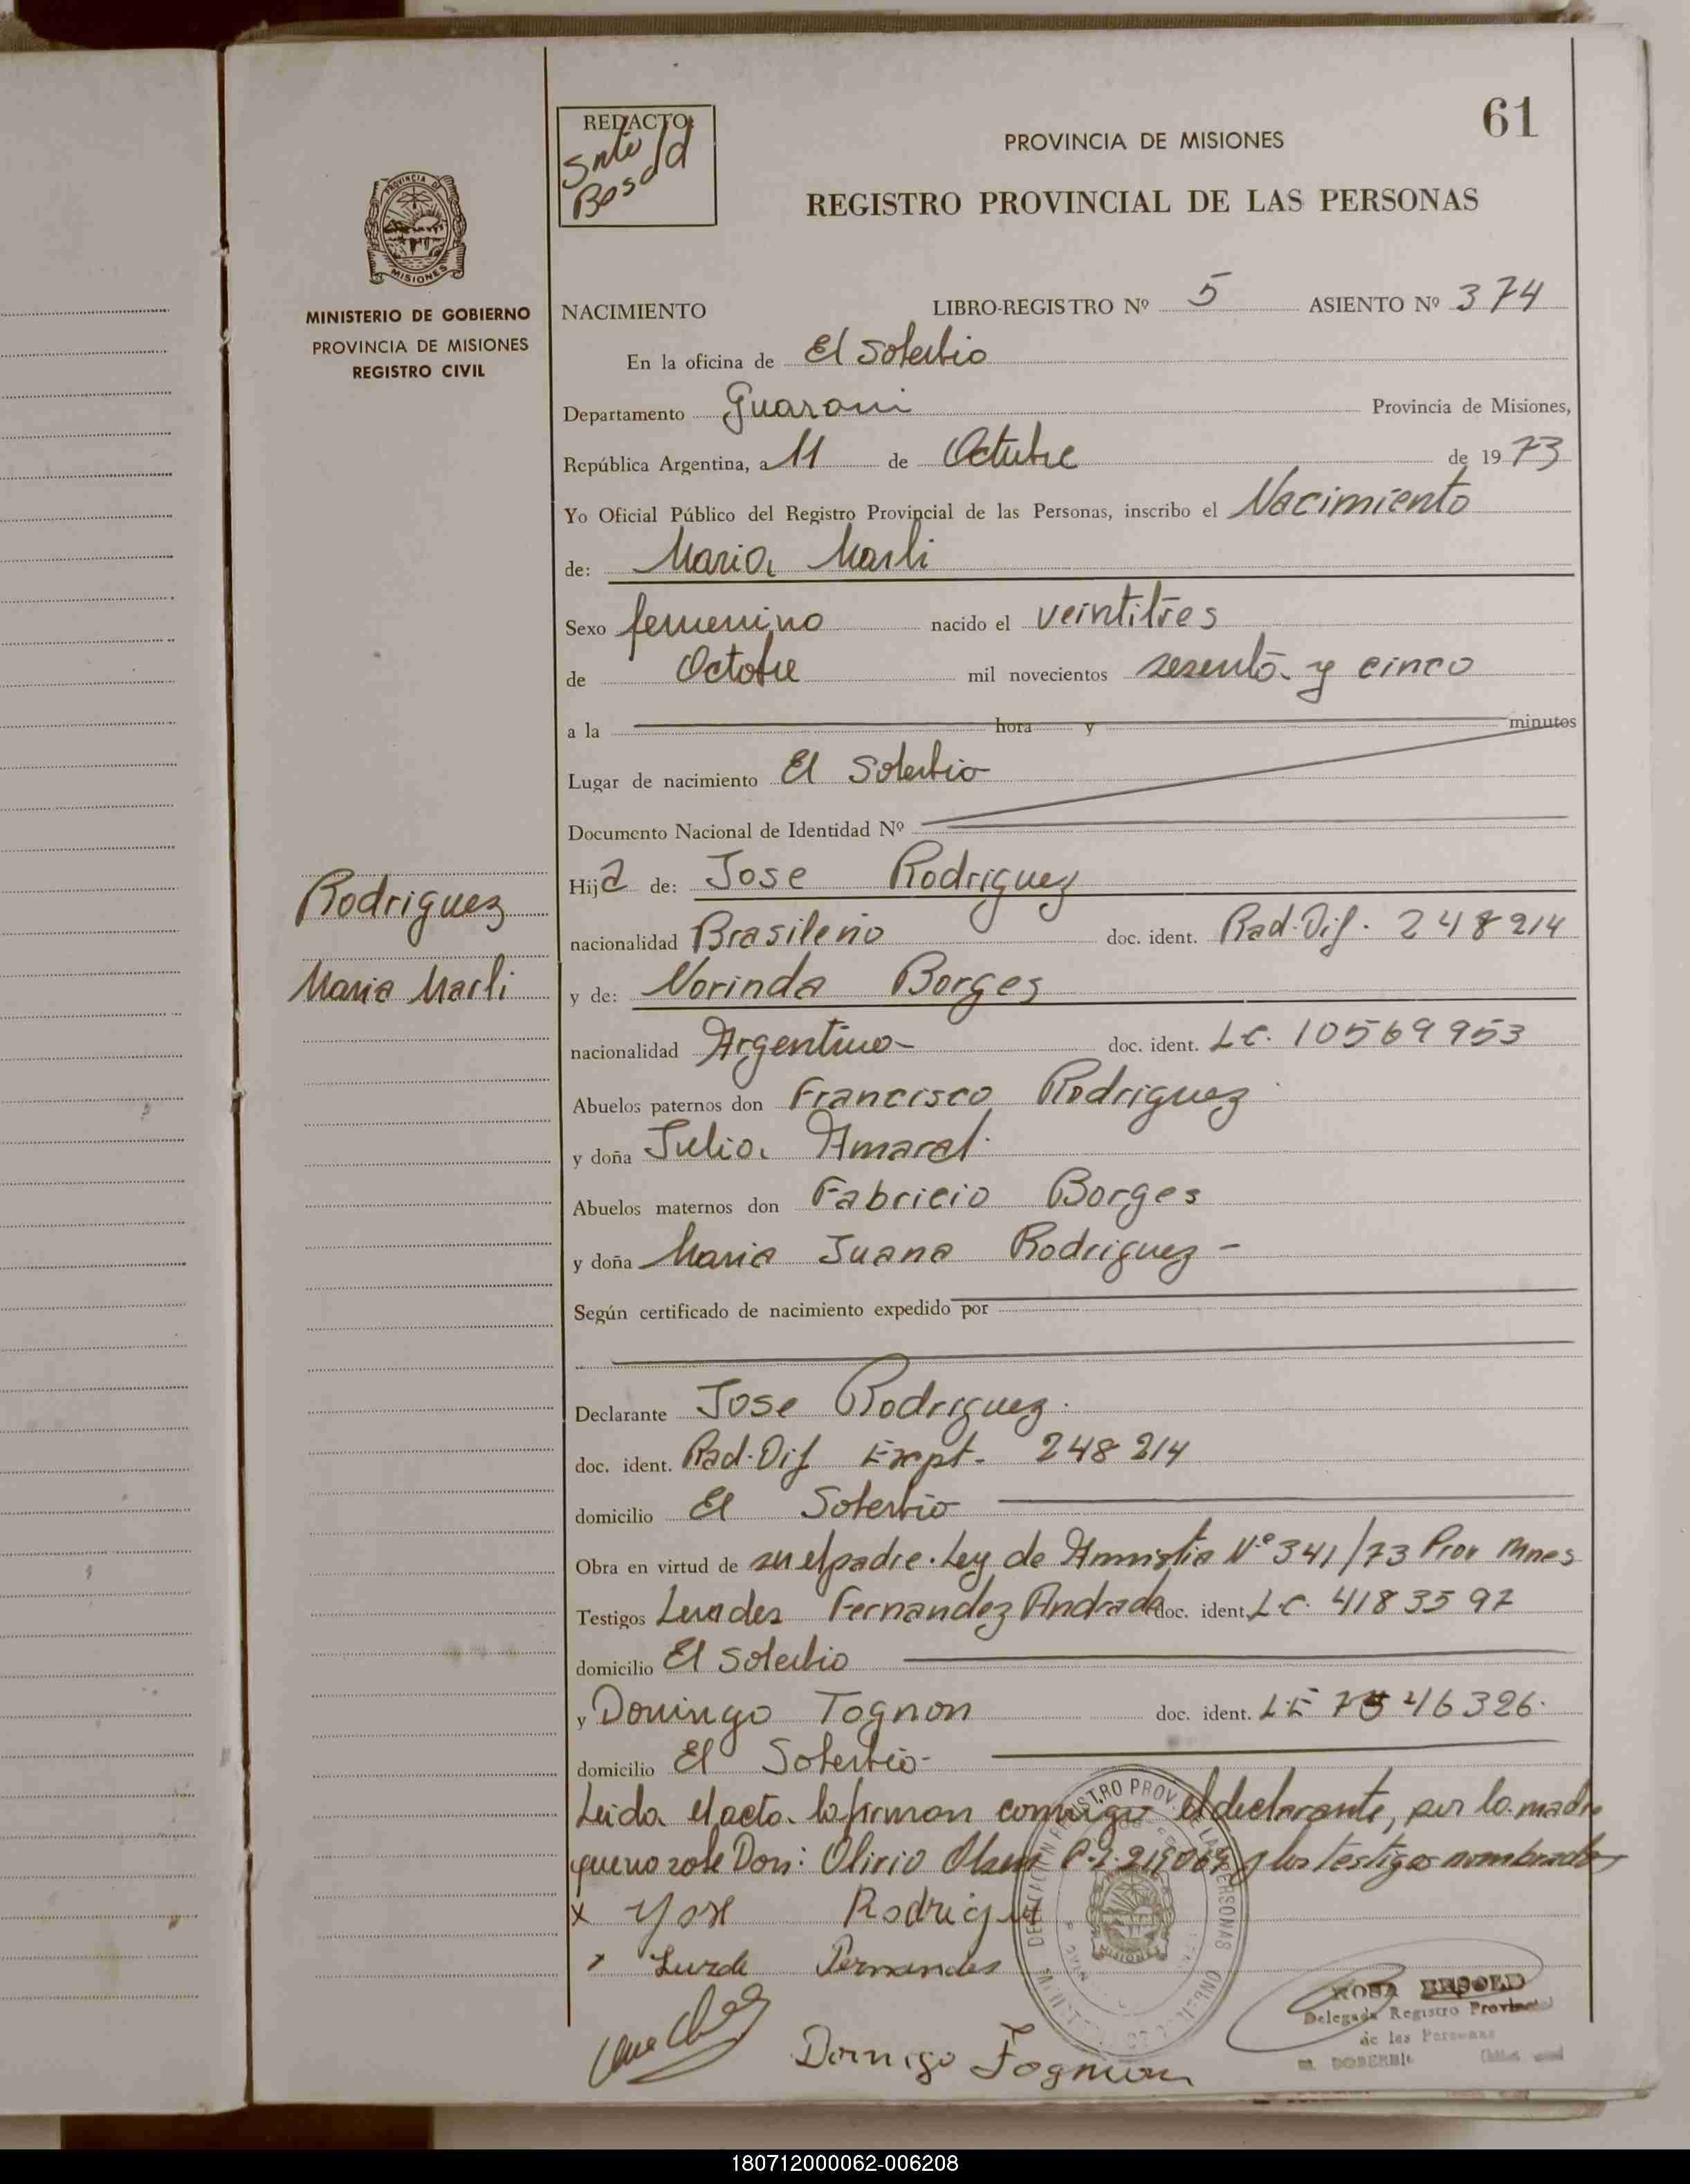 61
REDACTO:
PROVINCIA DE MISIONES
REGISTRO PROVINCIAL DE LAS PERSONAS
PROVINCIA DE
MISIONES
MINISTERIO DE GOBIERNO
PROVINCIA DE MISIONES
REGISTRO CIVIL
NACIMIENTO LIBRO-REGISTRO Nº 5 ASIENTO Nº 374
En la oficina de El Soberbio
Departamento Guarani Provincia de Misiones,
República Argentina, a 11 de Octubre de 1973
Yo Oficial Público del Registro Provincial de las Personas, inscribo el Nacimiento
de: Maria Marli
Sexo femenino nacido el veintitres
de Octobre mil novecientos sesenta y cinco
a la hora y minutos
Lugar de nacimiento El Soberbio
Documento Nacional de Identidad Nº
Hija de: Jose Rodriguez
nacionalidad Brasileño doc. ident. Rad. Dif. 248214
Rodriguez
Maria Marli
y de: Norinda Borges
nacionalidad Argentina doc. ident. LC. 10569953
Abuelos paternos don Francisco Rodriguez
y doña Julia Amaral
Abuelos maternos don Fabricio Borges
y doña Maria Juana Rodriguez
Según certificado de nacimiento expedido por
Declarante Jose Rodriguez.
doc. ident. Rad. Dif Expt. 248214
domicilio El Soberbio
Obra en virtud de ser el padre. Ley de Amnistia Nº 341/73 Prov Mnes
Testigos Fernandez Andrade doc. ident. L.C. 4183597
domicilio El Soberbio
y Domingo Tognon doc. ident. LE 46326
domicilio El Soberbio
Leida el acta. la firman conmigo el declarante, por la madre
que no sabe Don: Olirio C.I. 219069 y los testigos nombrados
x Jose Rodrigue
x Lurde Fernandes
Domigo Tognon
Delegada Registro Provincial
de las Personas
180712000062-006208